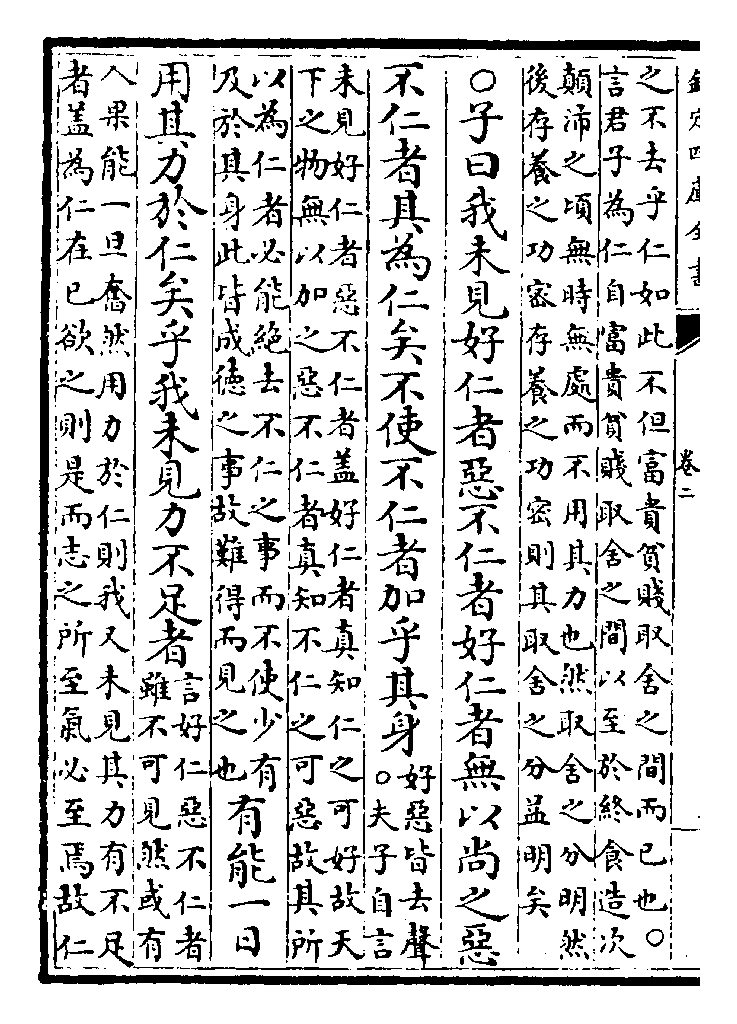 欽定四庫全書
卷二
之不去乎仁如此不但富貴貧賤取舍之間而已也○
言君子為仁自富貴貧賤取舍之間以至於終食造次
顛沛之頃無時無處而不用其力也然取舍之分明然
後存養之功密存養之功密則其取舍之分益明矣
○子曰我未見好仁者惡不仁者好仁者無以尚之惡
不仁者其為仁矣不使不仁者加乎其身
好惡皆去聲
○夫子自言
未見好仁者惡不仁者盖好仁者真知仁之可好故天
下之物無以加之惡不仁者真知不仁之可惡故其所
以為仁者必能絶去不仁之事而不使少有
及於其身此皆成徳之事故難得而見之也
有能一日
用其力於仁矣乎我未見力不足者
言好仁惡不仁者
雖不可見然或有
人果能一旦奮然用力於仁則我又未見其力有不足
者盖為仁在已欲之則是而志之所至氣必至焉故仁